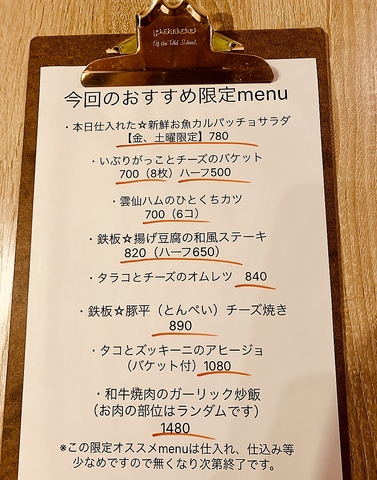 penco
Of the Old School.
今回のおすすめ限定menu
・本日仕入れた☆新鮮お魚カルパッチョサラダ
【金、土曜限定】780
・いぶりがっことチーズのバケット
700（8枚）ハーフ500
・雲仙ハムのひとくちカツ
700（6コ）
・鉄板☆揚げ豆腐の和風ステーキ
820（ハーフ650）
・タラコとチーズのオムレツ 840
・鉄板☆豚平（とんぺい）チーズ焼き
890
・タコとズッキーニのアヒージョ
（バケット付）1080
・和牛焼肉のガーリック炒飯
（お肉の部位はランダムです）
1480
※この限定オススメmenuは仕入れ、仕込み等
少なめですので無くなり次第終了です。